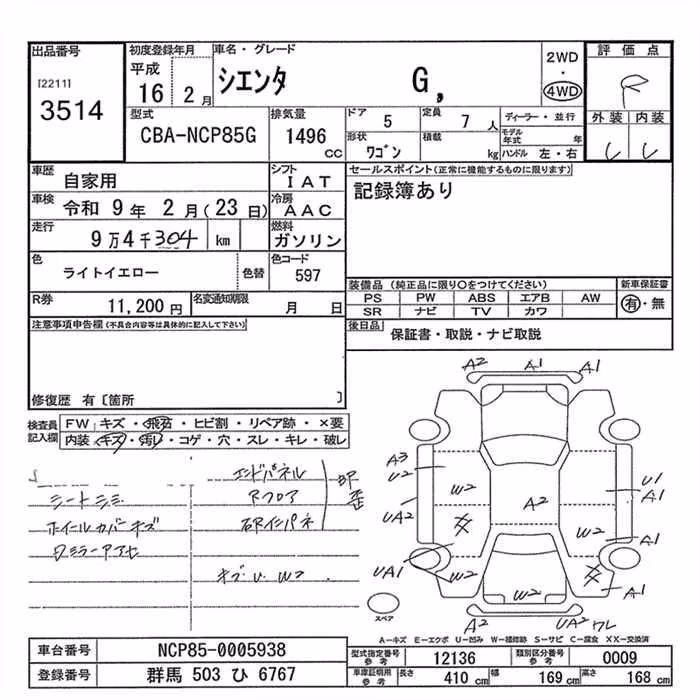 出品番号
[2211]
3514
初度登録年月
平成
16 2月
車名・グレード
シエンタ G,
2WD
・
4WD
評価点
R
型式
CBA-NCP85G
排気量
1496
CC
ドア
5
定員
7 人
形状
ワゴン
積載
kg
ディーラー・並行
モデル年式 年
ハンドル 左・右
外装 内装
し し
車歴
自家用
シフト
IAT
車検
令和 9年 2月(23日)
冷房
AAC
走行
9万4千304 km
燃料
ガソリン
色
ライトイエロー
色替
色コード
597
R券
11,200円
名変通知期限
月 日
セールスポイント(正常に機能するものに限ります)
記録簿あり
装備品(純正品に限り○をつけてください)
新車保証書
PS PW ABS エアB AW
SR ナビ TV カワ
有・無
後日品
保証書・取説・ナビ取説
注意事項申告欄(不具合内容等は具体的に記入して下さい)
修復歴 有〔箇所 〕
検査員
記入欄
FW キズ・飛石・ヒビ割・リペア跡・×要
内装 キズ・汚れ・コゲ・穴・スレ・キレ・破レ
シートシミ
ホイールカバーキズ
エンドパネル
Rフロア
A2 A1 A1
A3
U2
W2
A2
U1
A1
UA2
W2
A1
UA1
W2
W2
A1
A2
UA2 ワレ
スペア
A-キズ E-エクボ U-凹み W-補修跡 S-サビ C-腐食 XX-交換済
車台番号
NCP85-0005938
登録番号
群馬 503 ひ 6767
型式指定番号
参考
12136
類別区分番号
参考
0009
車庫証明用
参考
長さ 410 cm
幅 169 cm
高さ 168 cm